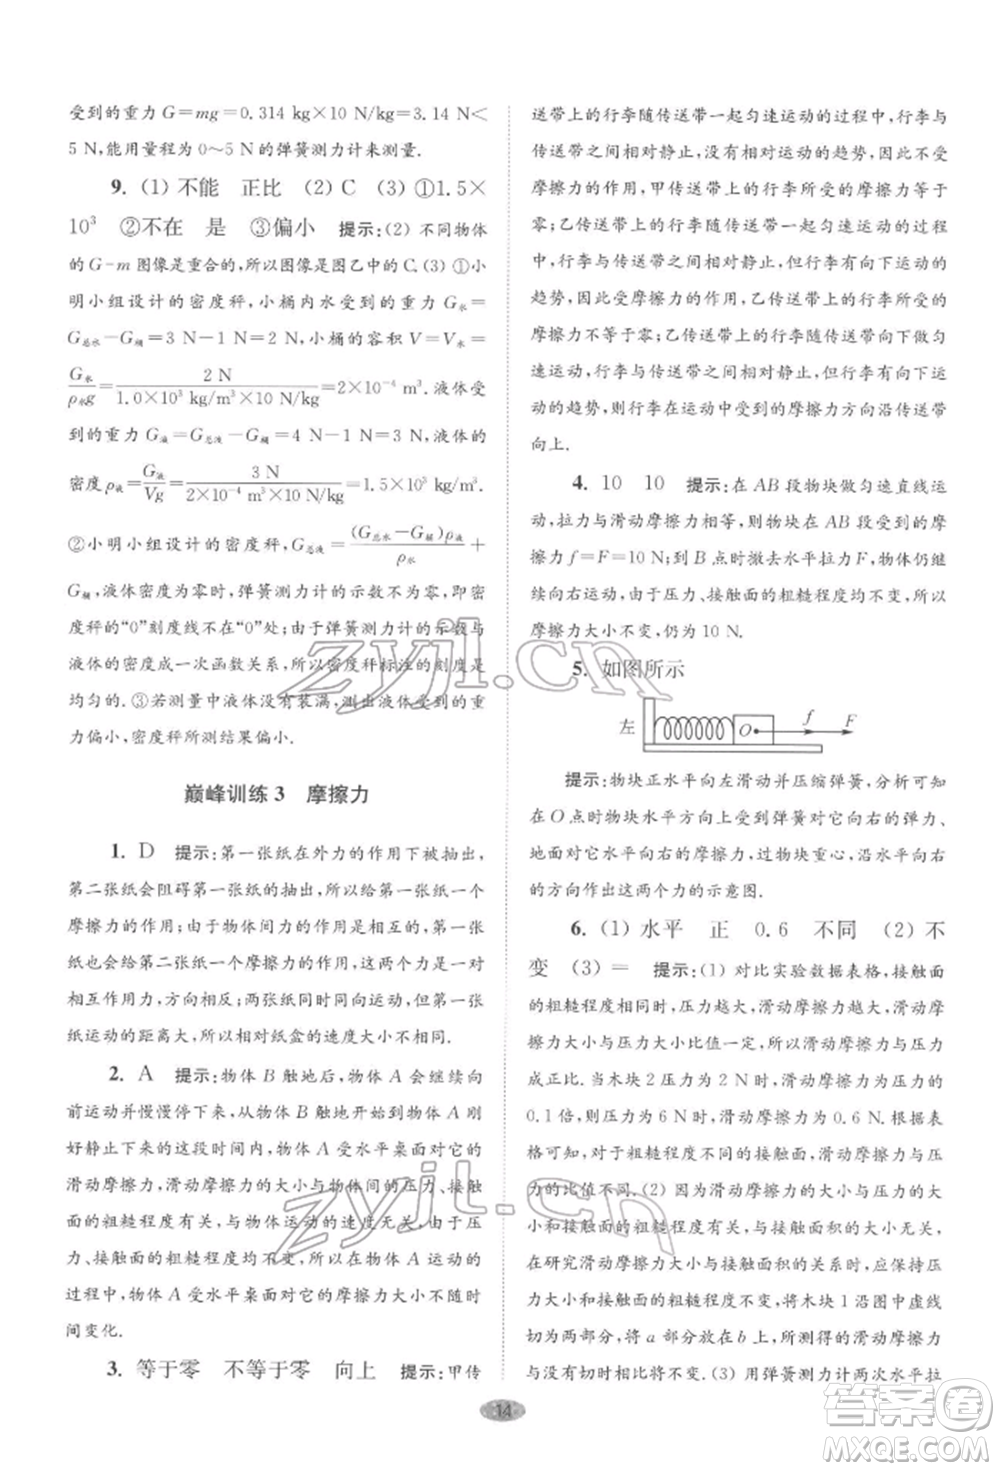 受到的重力 G=mg=0.314 kg×10 N/kg=3.14 N<
5 N,能用量程为 0～5 N 的弹簧测力计来测量.
9. (1) 不能 正比 (2) C (3) ①1.5×
10³ ②不在 是 ③偏小 提示:(2) 不同物体
的 G-m 图像是重合的,所以图像是图乙中的 C.(3) ①小
明小组设计的密度秤,小桶内水受到的重力 G水=
G总水-G桶=3 N-1 N=2 N,小桶的容积 V=V水=
G水/ρ水g=2 N/1.0×10³ kg/m³×10 N/kg=2×10⁻⁴ m³.液体受
到的重力 G液=G总液-G桶=4 N-1 N=3 N,液体的
密度 ρ液=G液/Vg=3 N/2×10⁻⁴ m³×10 N/kg=1.5×10³ kg/m³.
②小明小组设计的密度秤,G总液=(G总水-G桶)ρ液/ρ水+
G桶,液体密度为零时,弹簧测力计的示数不为零,故此
密度秤的“0”刻度线不在“0”处;由于弹簧测力计的示数与
液体的密度成一次函数关系,所以密度秤的刻度是
均匀的.③若测量中液体没有装满,测出液体受到的重
力偏小,密度秤所测结果偏小.
巅峰训练 3 摩擦力
1. D 提示:第一张纸在外力的作用下被抽出,
第二张纸会阻碍第一张纸的抽出,所以给第一张纸一个
摩擦力的作用;由于物体间力的作用是相互的,第一张
纸也会给第二张纸一个摩擦力的作用,这两个力是一对
相互作用力,方向相反;两张纸同时同向运动,第一张
纸运动的距离大,所以相对纸盒的速度大小不相同.
2. A 提示:物体 B 触地后,物体 A 会继续向
前运动并慢慢停下来,从物体 B 触地开始到物体 A 刚
好静止下来的这段时间内,物体 A 受水平桌面对它的
滑动摩擦力,滑动摩擦力的大小与物体间的压力、接触
面的粗糙程度有关,与物体运动的速度无关,由于压
力、接触面的粗糙程度均不变,所以在物体 A 运动的
过程中,物体 A 受水平桌面对它的摩擦力大小不随时
间变化.
3. 等于零 不等于零 向上 提示:甲传
送带上的行李随传送带一起匀速运动的过程中,行李与
传送带之间相对静止,没有相对运动的趋势,因此不受
摩擦力的作用,甲传送带上的行李所受的摩擦力等于
零;乙传送带上的行李随传送带一起匀速运动的过程
中,行李与传送带之间相对静止,但行李有向下运动的
趋势,因此受摩擦力的作用,乙传送带上的行李所受的
摩擦力不等于零;乙传送带上的行李随传送带向下做匀
速运动,行李与传送带之间相对静止,但行李有向下运
动的趋势,则行李在运动中受到的摩擦力方向沿传送带
向上.
4. 10 10 提示:在 AB 段物块做匀速直线运
动,拉力与滑动摩擦力相等,则物块在 AB 段受到的摩
擦力 f=F=10 N;到 B 点时撤去水平拉力 F,物体仍继
续向右运动,由于压力、接触面的粗糙程度均不变,所以
摩擦力大小不变,仍为 10 N.
5. 如图所示
左 O f F
提示:物块正水平向左滑动并压缩弹簧,分析可知
在 O 点时物块水平方向上受到弹簧对它向右的弹力、
地面对它向右的摩擦力,过物块重心,沿水平向右
的方向作出这两个力的示意图.
6. (1) 水平 正 0.6 不同 (2) 不
变 (3) = 提示:(1) 对比实验数据表格,接触面
的粗糙程度不变时,压力越大,滑动摩擦力越大,滑动摩
擦力大小与压力大小比值一定,即滑动摩擦力与压力
成正比.当木块 2 压力为 1 N 时,滑动摩擦力是压力的
0.1 倍,则压力为 6 N 时,滑动摩擦力为 0.6 N.根据表
格可知,对于粗糙程度不同的接触面,滑动摩擦力与压
力的比值不同.(2) 因为滑动摩擦力大小与压力大小
和接触面的粗糙程度有关,与接触面积的大小无关,故
在研究滑动摩擦力与接触面积的关系时,应该控制压力
大小和接触面的粗糙程度不变,将木块 1 沿图中虚线
切为两部分,将 a 部分放在 b 上,所测的滑动摩擦力与
切之前相比不变.(3) 用弹簧测力计两次水平拉
14
zyjl.cn
zyjl.cn
答案圈
MXQE.COM